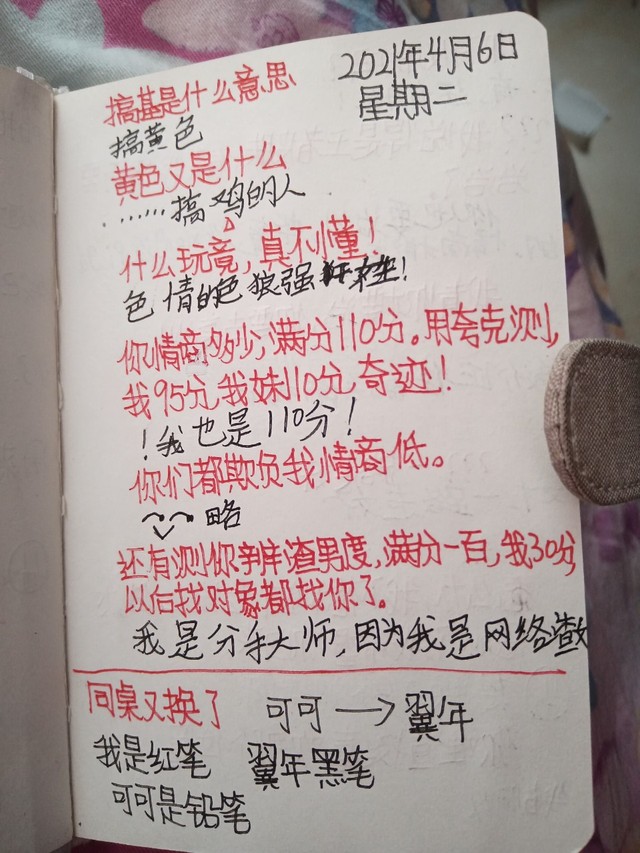 2021年4月6日
星期二
搞基是什么意思
搞黄色
黄色又是什么
……搞鸡的人
什么玩竟,真不懂!
色情的色狼强
你情商多少,满分110分。用夸克测,
我95分,我妹110分,奇迹!
!我也是110分!
你们都欺负我情商低。
略
还有测你辨渣男度,满分一百,我30分,
以后找对象都找你了。
我是分手大师,因为我是网络渣
同桌又换了
可可→翼年
我是红笔 翼年黑笔
可可是铅笔